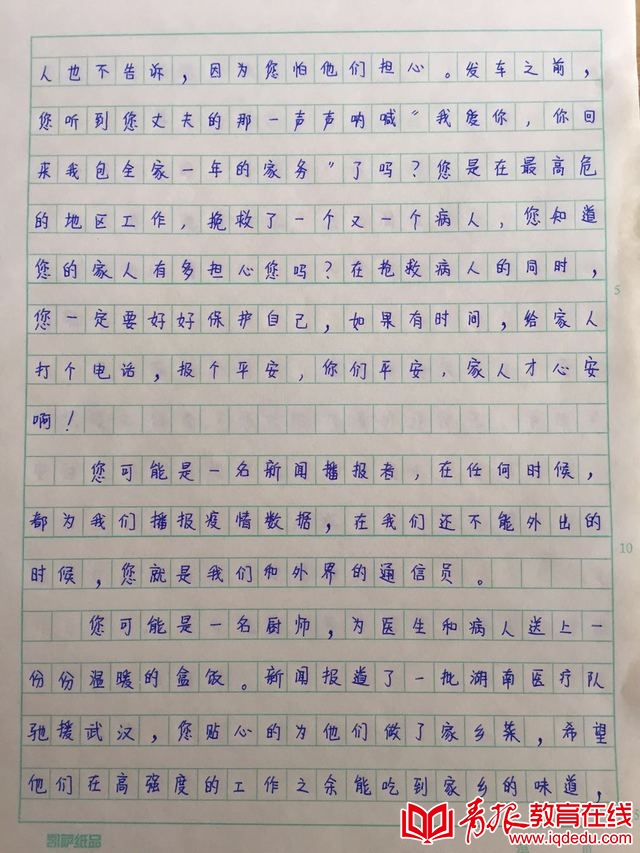 人也不告诉，因为您怕他们担心。发车之前，
您听到您丈夫的那一声声呐喊“我爱你，你回
来我包全家一年的家务”了吗？您是在最高危
的地区工作，挽救了一个又一个病人，您知道
您的家人有多担心您吗？在抢救病人的同时，
您一定要好好保护自己，如果有时间，给家人
打个电话，报个平安，你们平安，家人才心安
啊！
您可能是一名新闻播报者，在任何时候，
都为我们播报疫情数据，在我们还不能外出的
时候，您就是我们和外界的通信员。
您可能是一名厨师，为医生和病人送上一
份份温暖的盒饭。新闻报道了一批湖南医疗队
驰援武汉，您贴心的为他们做了家乡菜，希望
他们在高强度的工作之余能吃到家乡的味道，
5
10
凯萨纸品
青报教育在线
www.iqdedu.com